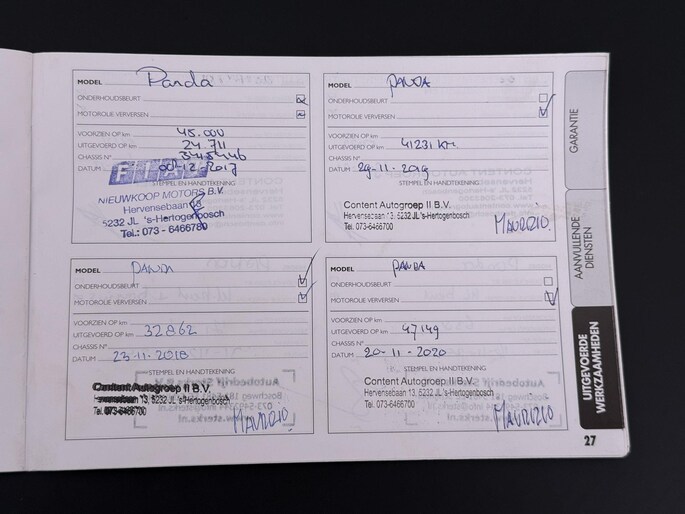 MODEL Panda
ONDERHOUDSBEURT
MOTOROLIE VERVERSEN
VOORZIEN OP km 45.000
UITGEVOERD OP km 24 711
CHASSIS N°
DATUM 12-2017
STEMPEL EN HANDTEKENING
FIAT
NIEUWKOOP MOTORS B.V.
Hervensebaan 13
5232 JL 's-Hertogenbosch
Tel.: 073 - 6466700
MODEL PANDA
ONDERHOUDSBEURT
MOTOROLIE VERVERSEN
VOORZIEN OP km
UITGEVOERD OP km 41231 KM
CHASSIS N°
DATUM 29-11-2019
STEMPEL EN HANDTEKENING
Content Autogroep II B.V.
Hervensebaan 13, 5232 JL 's-Hertogenbosch
Tel. 073-6466700
MAURIZIO
MODEL PANDA
ONDERHOUDSBEURT
MOTOROLIE VERVERSEN
VOORZIEN OP km
UITGEVOERD OP km 32862
CHASSIS N°
DATUM 23-11-2018
STEMPEL EN HANDTEKENING
Content Autogroep II B.V.
Hervensebaan 13, 5232 JL 's-Hertogenbosch
Tel. 073-6466700
MAURIZIO
MODEL PANDA
ONDERHOUDSBEURT
MOTOROLIE VERVERSEN
VOORZIEN OP km
UITGEVOERD OP km 47149
CHASSIS N°
DATUM 20-11-2020
STEMPEL EN HANDTEKENING
Content Autogroep II B.V.
Hervensebaan 13, 5232 JL 's-Hertogenbosch
Tel. 073-6466700
MAURIZIO
GARANTIE
AANVULLENDE
DIENSTEN
UITGEVOERDE
WERKZAAMHEDEN
27